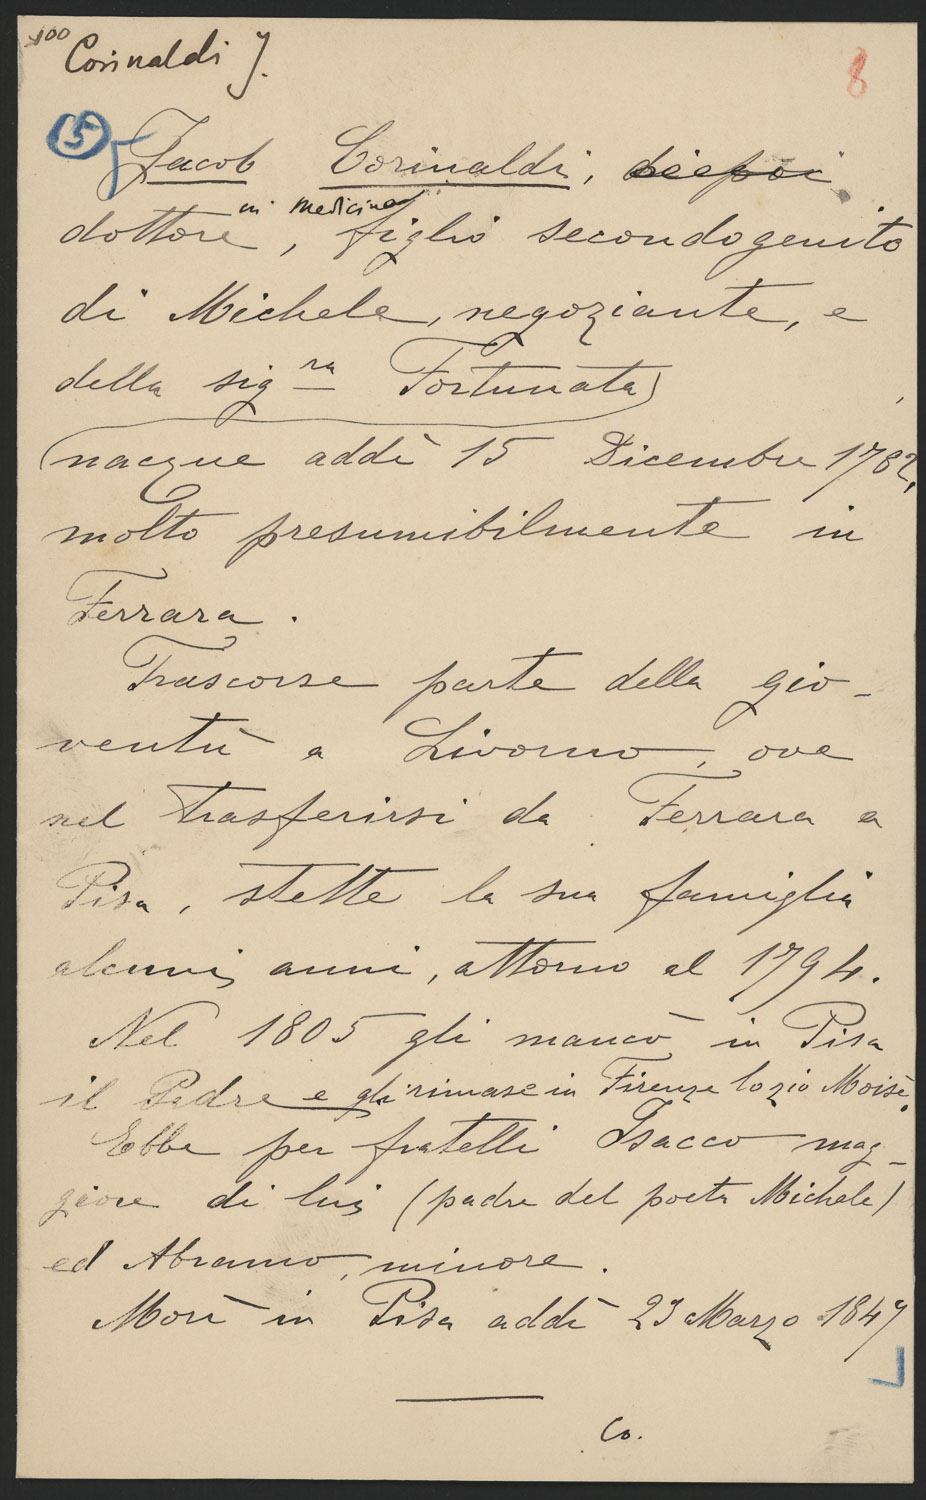 100
Corinaldi J.
8
15
Jacob Corinaldi, di poi
in medicina
dottore, figlio secondogenito
di Michele, negoziante, e
della sig.ra Fortunata
nacque addì 15 Dicembre 1782,
molto presumibilmente in
Ferrara.
Trascorse parte della gio-
ventù a Livorno, ove
nel trasferirsi da Ferrara a
Pisa, stette la sua famiglia
alcuni anni, attorno al 1794.
Nel 1805 gli mancò in Pisa
il Padre e gli rimase in Firenze lo zio Moisè.
Ebbe per fratelli Isacco mag-
giore di lui (padre del poeta Michele)
ed Abramo, minore.
Morì in Pisa addì 23 Marzo 1847
Co.